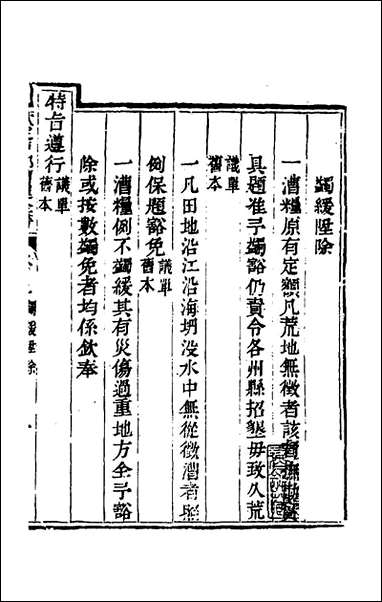 蠲緩陞除
一漕糧原有定額凡荒地無徵者該督撫勘實
具題准予蠲豁仍責令各州縣招墾毋致久荒
議單
舊本
一凡田地沿江沿海坍没水中無從徵漕者照
例保題豁免議單
舊本
一漕糧例不蠲緩其有災傷過重地方全予豁
除或按數蠲免者均係欽奉
特旨遵行議單
舊本
蠲緩陞除